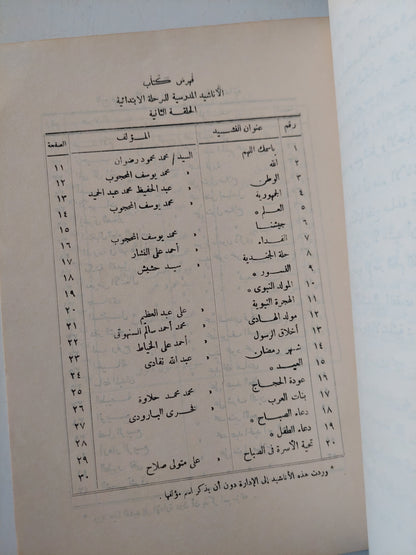 فهرس كتاب
الأناشيد المدرسية للمرحلة الابتدائية
الحلقة الثانية
رقم عنوان النشيد المؤلف الصفحة
١ باسمك اللهم السيد / محمد محمود رضوان ١١
٢ الله » محمد يوسف المحجوب ١٢
٣ الوطن » عبد الحفيظ محمد عبد الحميد ١٣
٤ الجمهورية » محمد يوسف المحجوب ١٤
٥ العلم * ١٥
٦ جيشنا » محمد يوسف المحجوب ١٦
٧ الفداء » أحمد على النشار ١٧
٨ حلة الجندية » سيد حشيش ١٨
٩ النسور * ١٩
١٠ المولد النبوى * ٢٠
١١ الهجرة النبوية » على عبد العظيم ٢١
١٢ مولد الهادى » محمد أحمد سالم السنهوتى ٢٢
١٣ أخلاق الرسول » أحمد على الخياط ٢٣
١٤ شهر رمضان » عبد الله نقادى ٢٤
١٥ العيد * ٢٥
١٦ عودة الحجاج » محمد محمد حلاوة ٢٦
١٧ بنات العرب » فخرى البارودى ٢٧
١٨ دعاء الصباح * ٢٨
١٩ دعاء الطفل * ٢٩
٢٠ تحية الأسرة فى الصباح » على متولى صلاح ٣٠
* وردت هذه الأناشيد إلى الإدارة دون أن يذكر اسم مؤلفها .